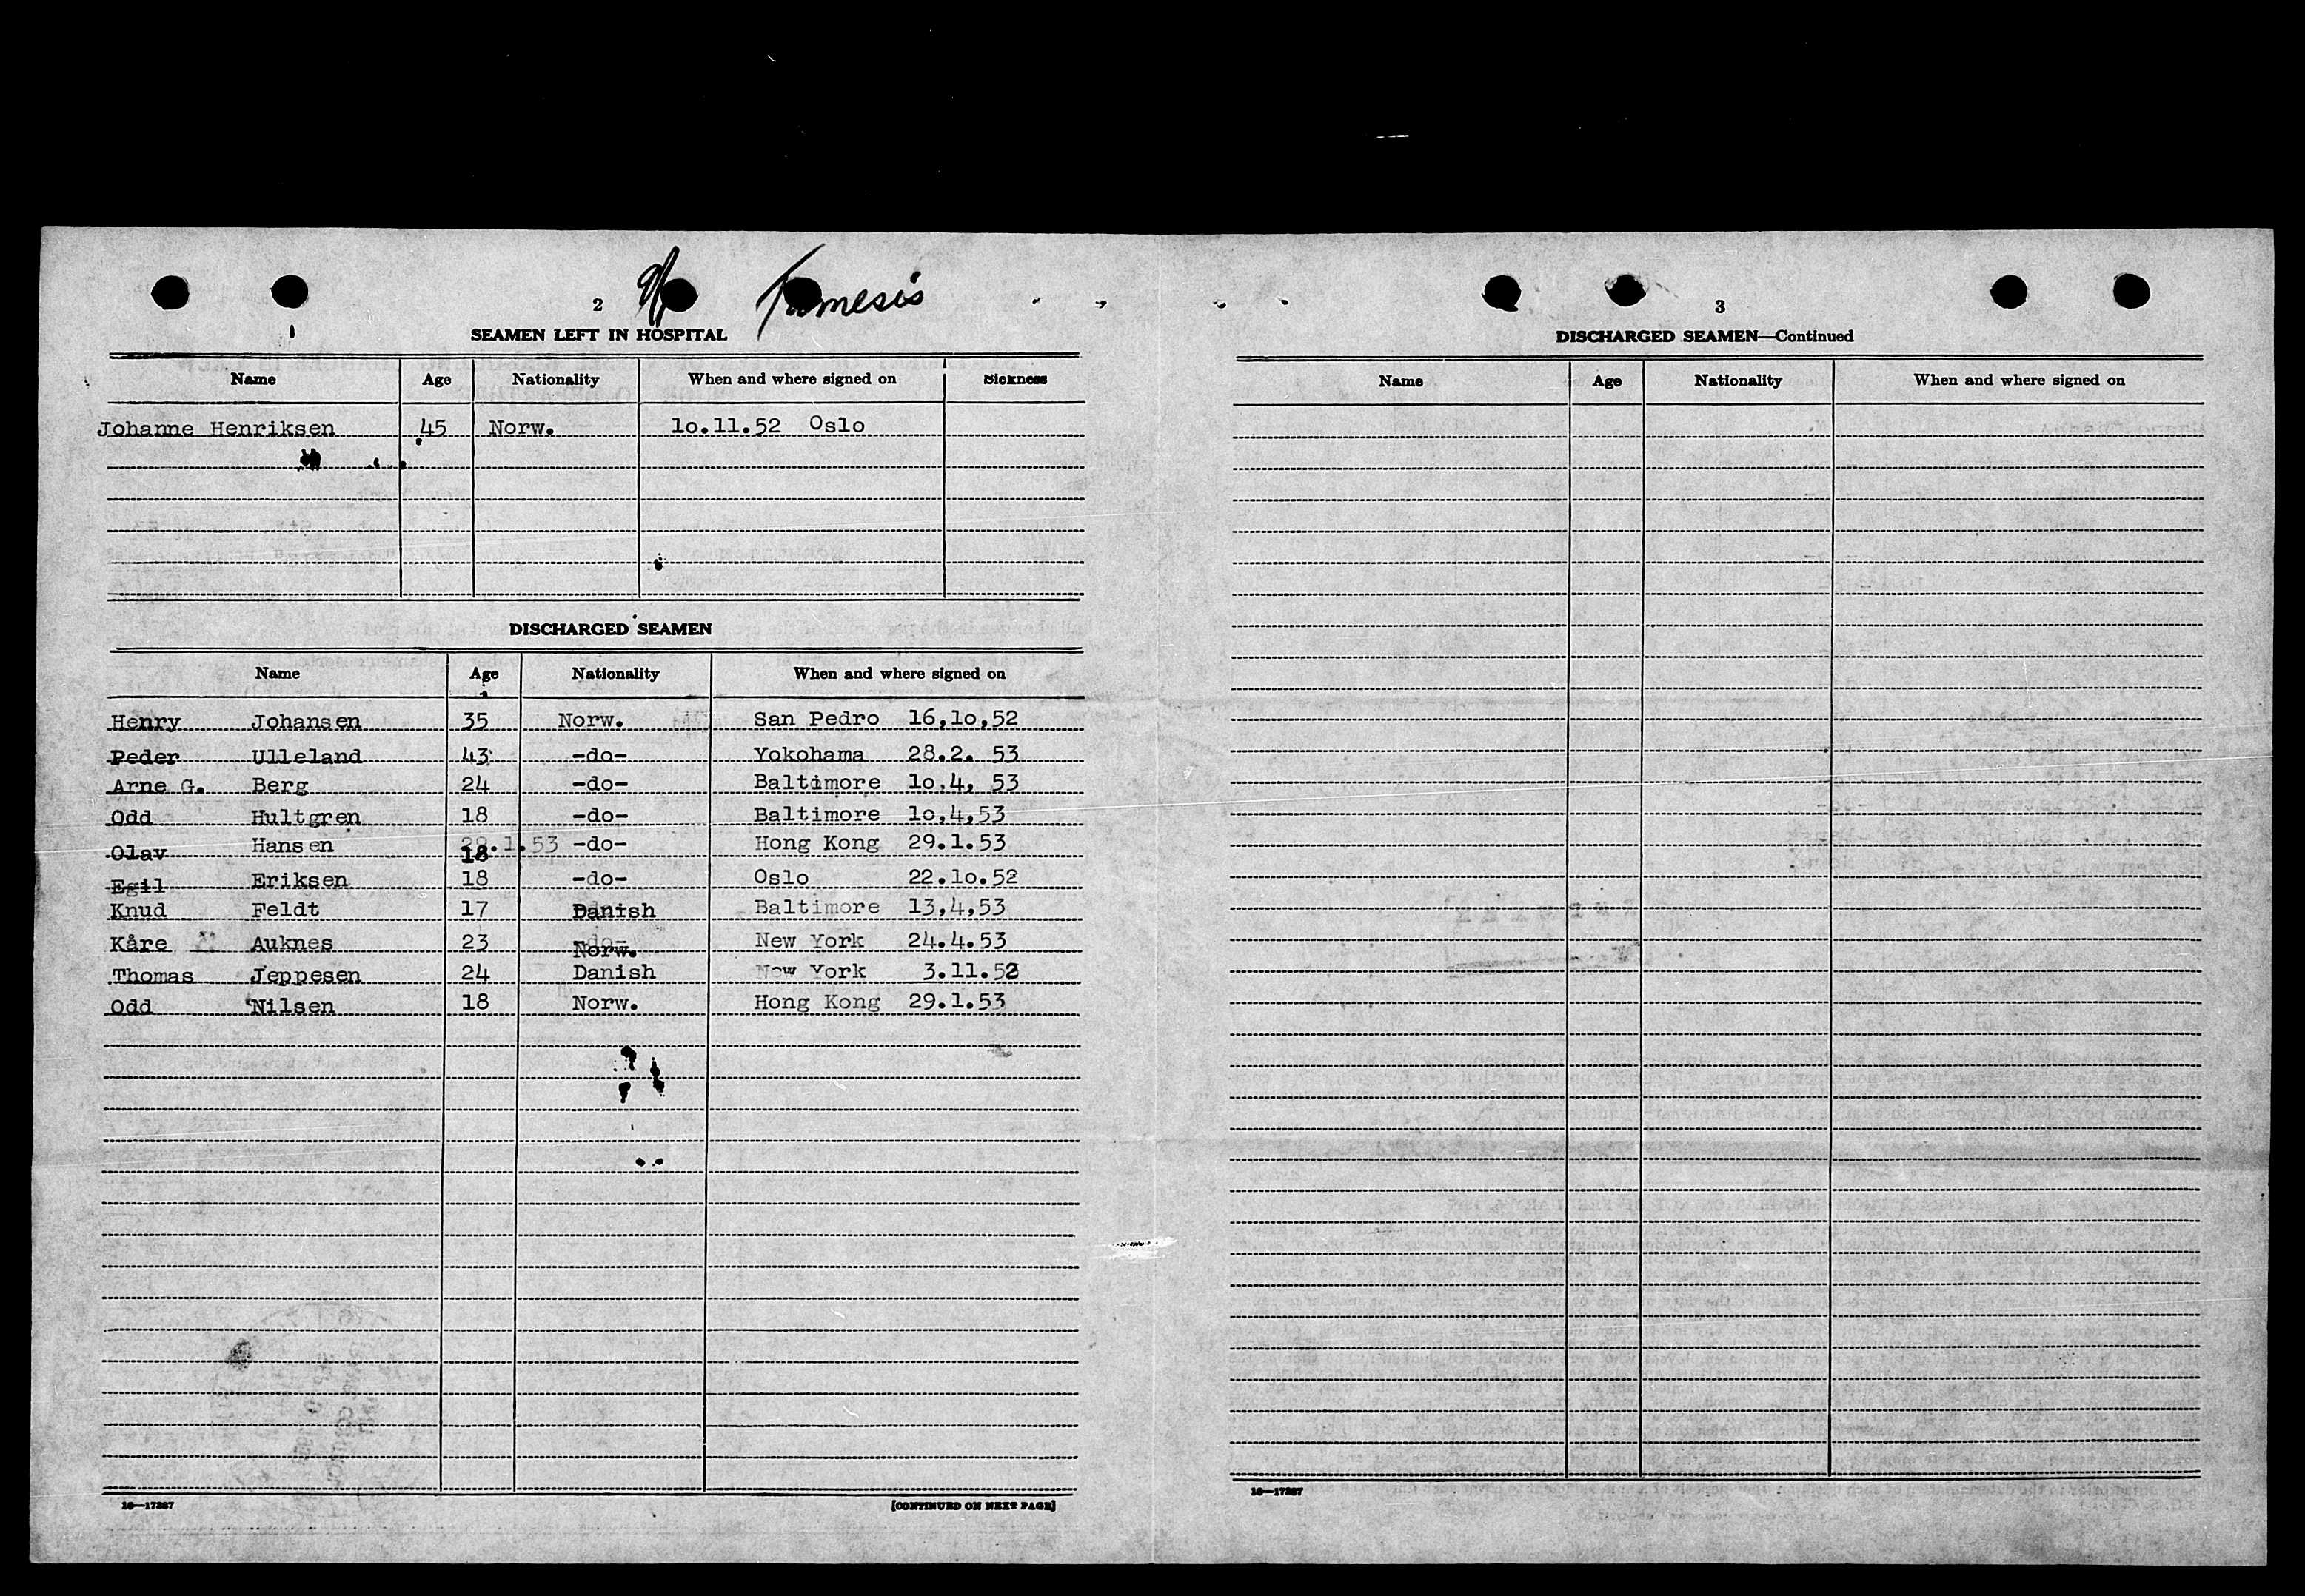 2 Tamesis
SEAMEN LEFT IN HOSPITAL
Name Age Nationality When and where signed on Sickness
Johanne Henriksen 45 Norw. 10.11.52 Oslo
DISCHARGED SEAMEN
Name Age Nationality When and where signed on
Henry Johansen 35 Norw. San Pedro 16,10,52
Peder Ulleland 43 -do- Yokohama 28.2. 53
Arne G. Berg 24 -do- Baltimore 10.4, 53
Odd Hultgren 18 -do- Baltimore 10,4,53
Olav Hansen 18 -do- Hong Kong 29.1.53
Egil Eriksen 18 -do- Oslo 22.10.52
Knud Feldt 17 Danish Baltimore 13,4,53
Kåre Auknes 23 Norw. New York 24.4.53
Thomas Jeppesen 24 Danish New York 3.11.52
Odd Nilsen 18 Norw. Hong Kong 29.1.53
16—17287 [CONTINUED ON NEXT PAGE]
3
DISCHARGED SEAMEN—Continued
Name Age Nationality When and where signed on
16—17287